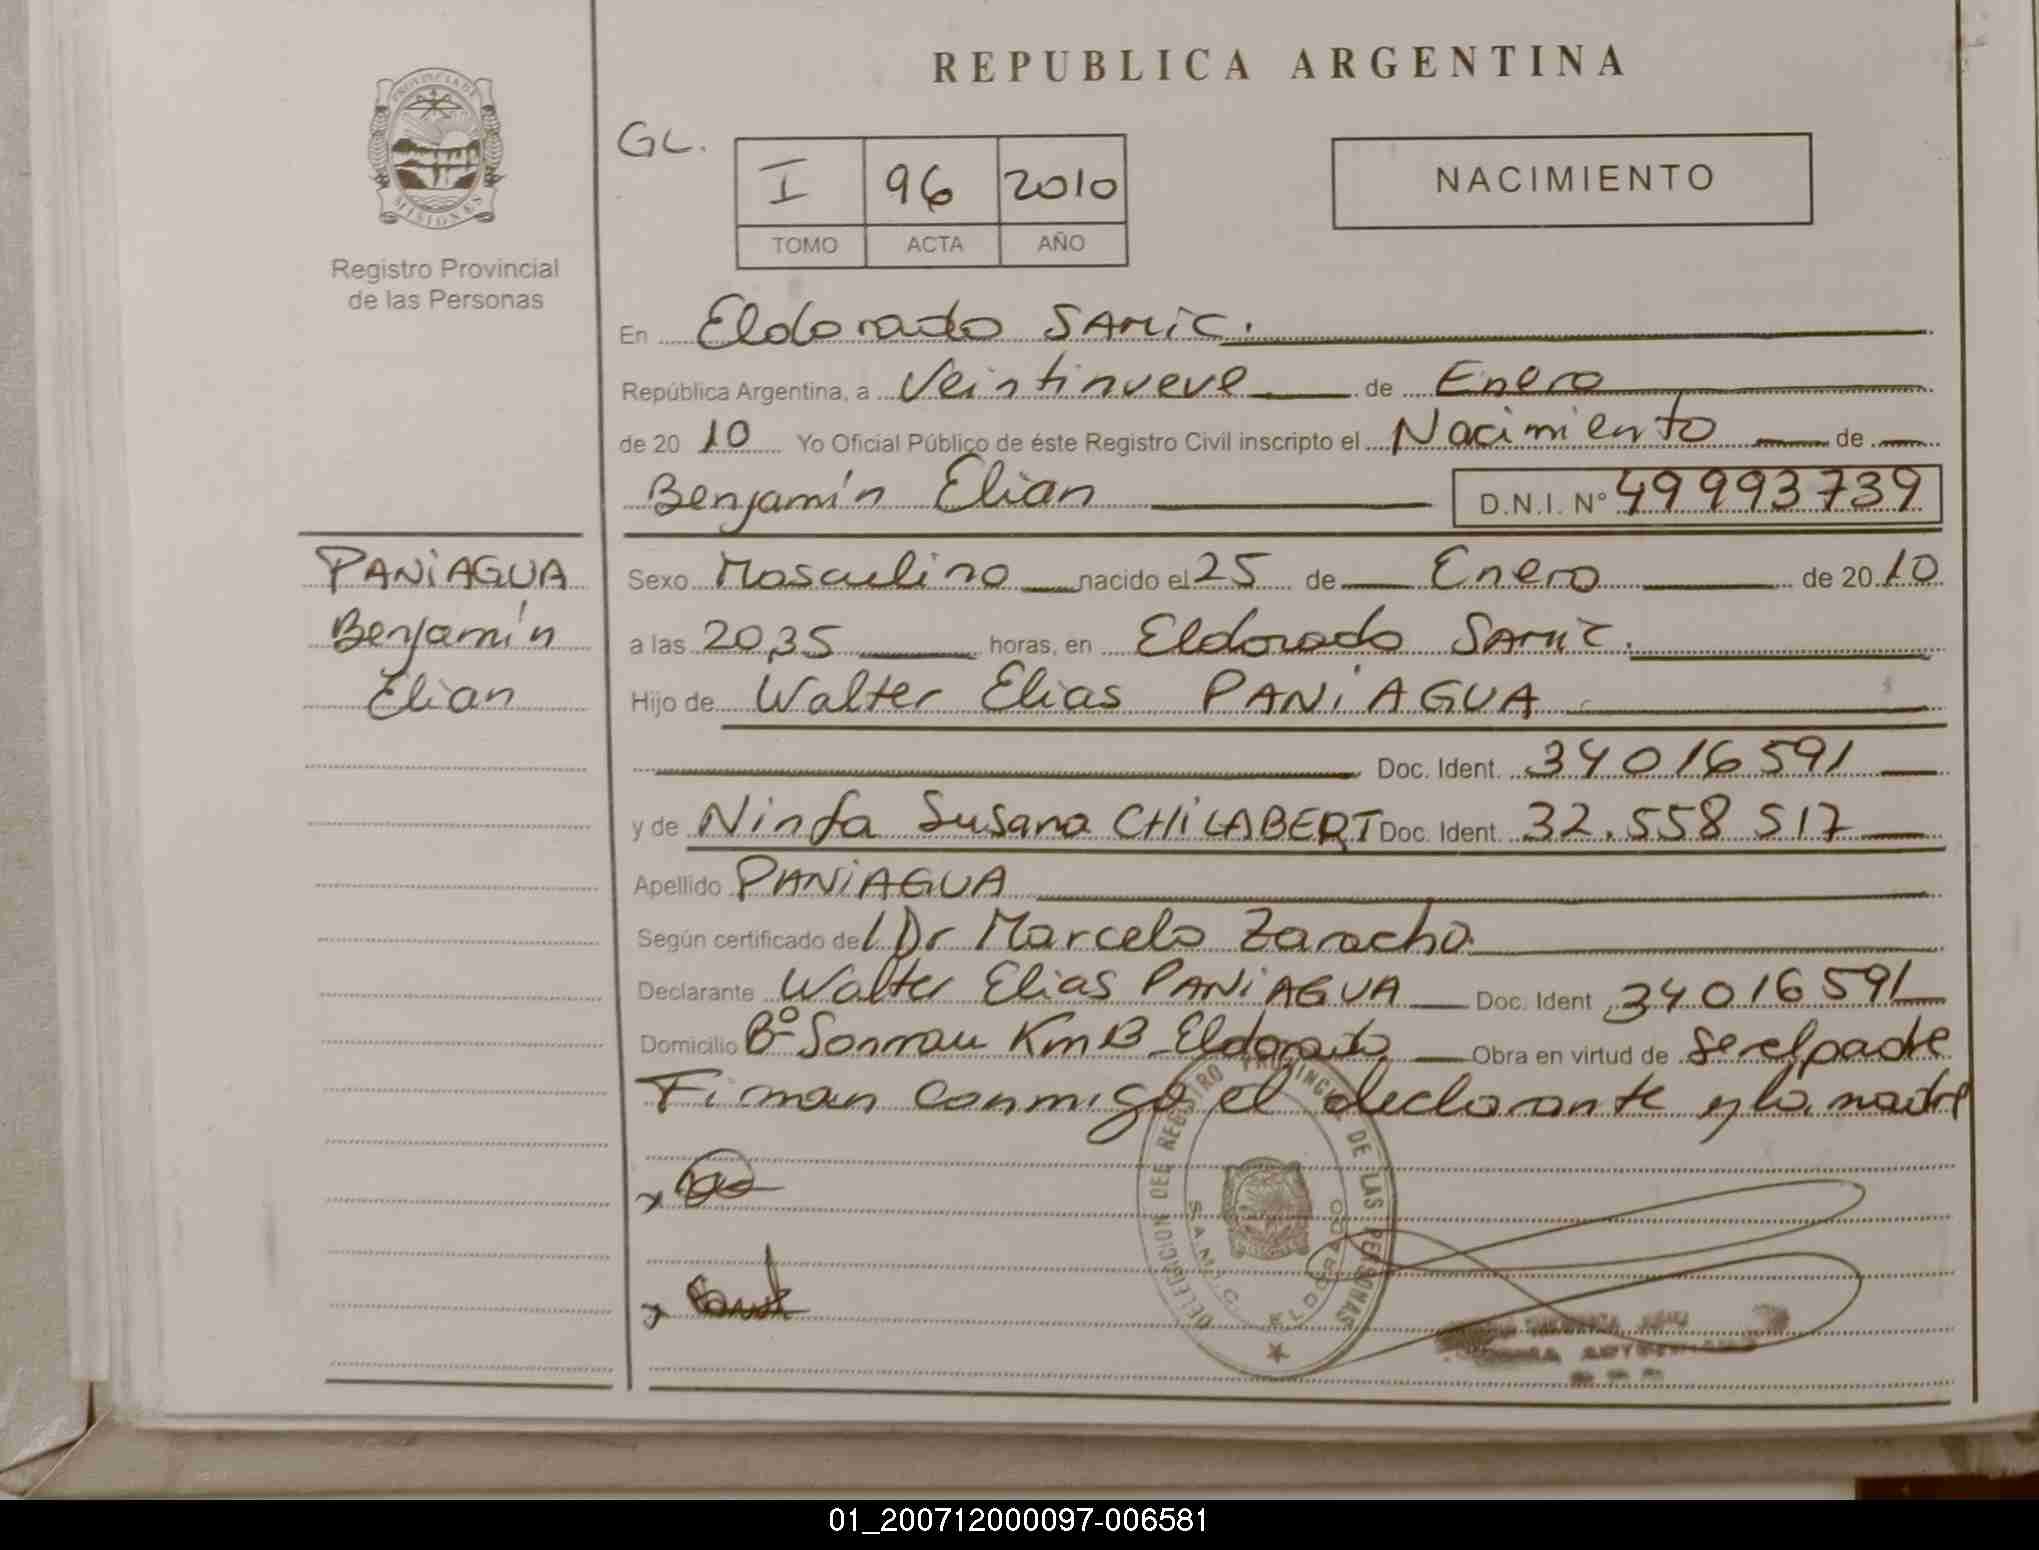 REPUBLICA ARGENTINA
PROVINCIA DE
MISIONES
Registro Provincial
de las Personas
GL.
I 96 2010
TOMO ACTA AÑO
NACIMIENTO
En Eldorado SAMIC.
República Argentina, a Veintinueve de Enero
de 20 10 Yo Oficial Público de éste Registro Civil inscripto el Nacimiento de
Benjamín Elian D.N.I. Nº 49993739
PANIAGUA
Benjamín
Elian
Sexo Masculino nacido el 25 de Enero de 20 10
a las 20,35 horas, en Eldorado SAMIC.
Hijo de Walter Elias PANIAGUA
Doc. Ident. 34016591
y de Ninfa Susana CHILABERT Doc. Ident. 32.558 517
Apellido PANIAGUA
Según certificado del Dr Marcelo Zaracho
Declarante Walter Elias PANIAGUA Doc. Ident 34016591
Domicilio Bº Km Eldorado Obra en virtud de ser el padre
Firman conmigo el declarante y la madre
DELEGACION DEL REGISTRO PROVINCIAL DE LAS PERSONAS
S.A.M.I.C. ELDORADO
01_200712000097-006581